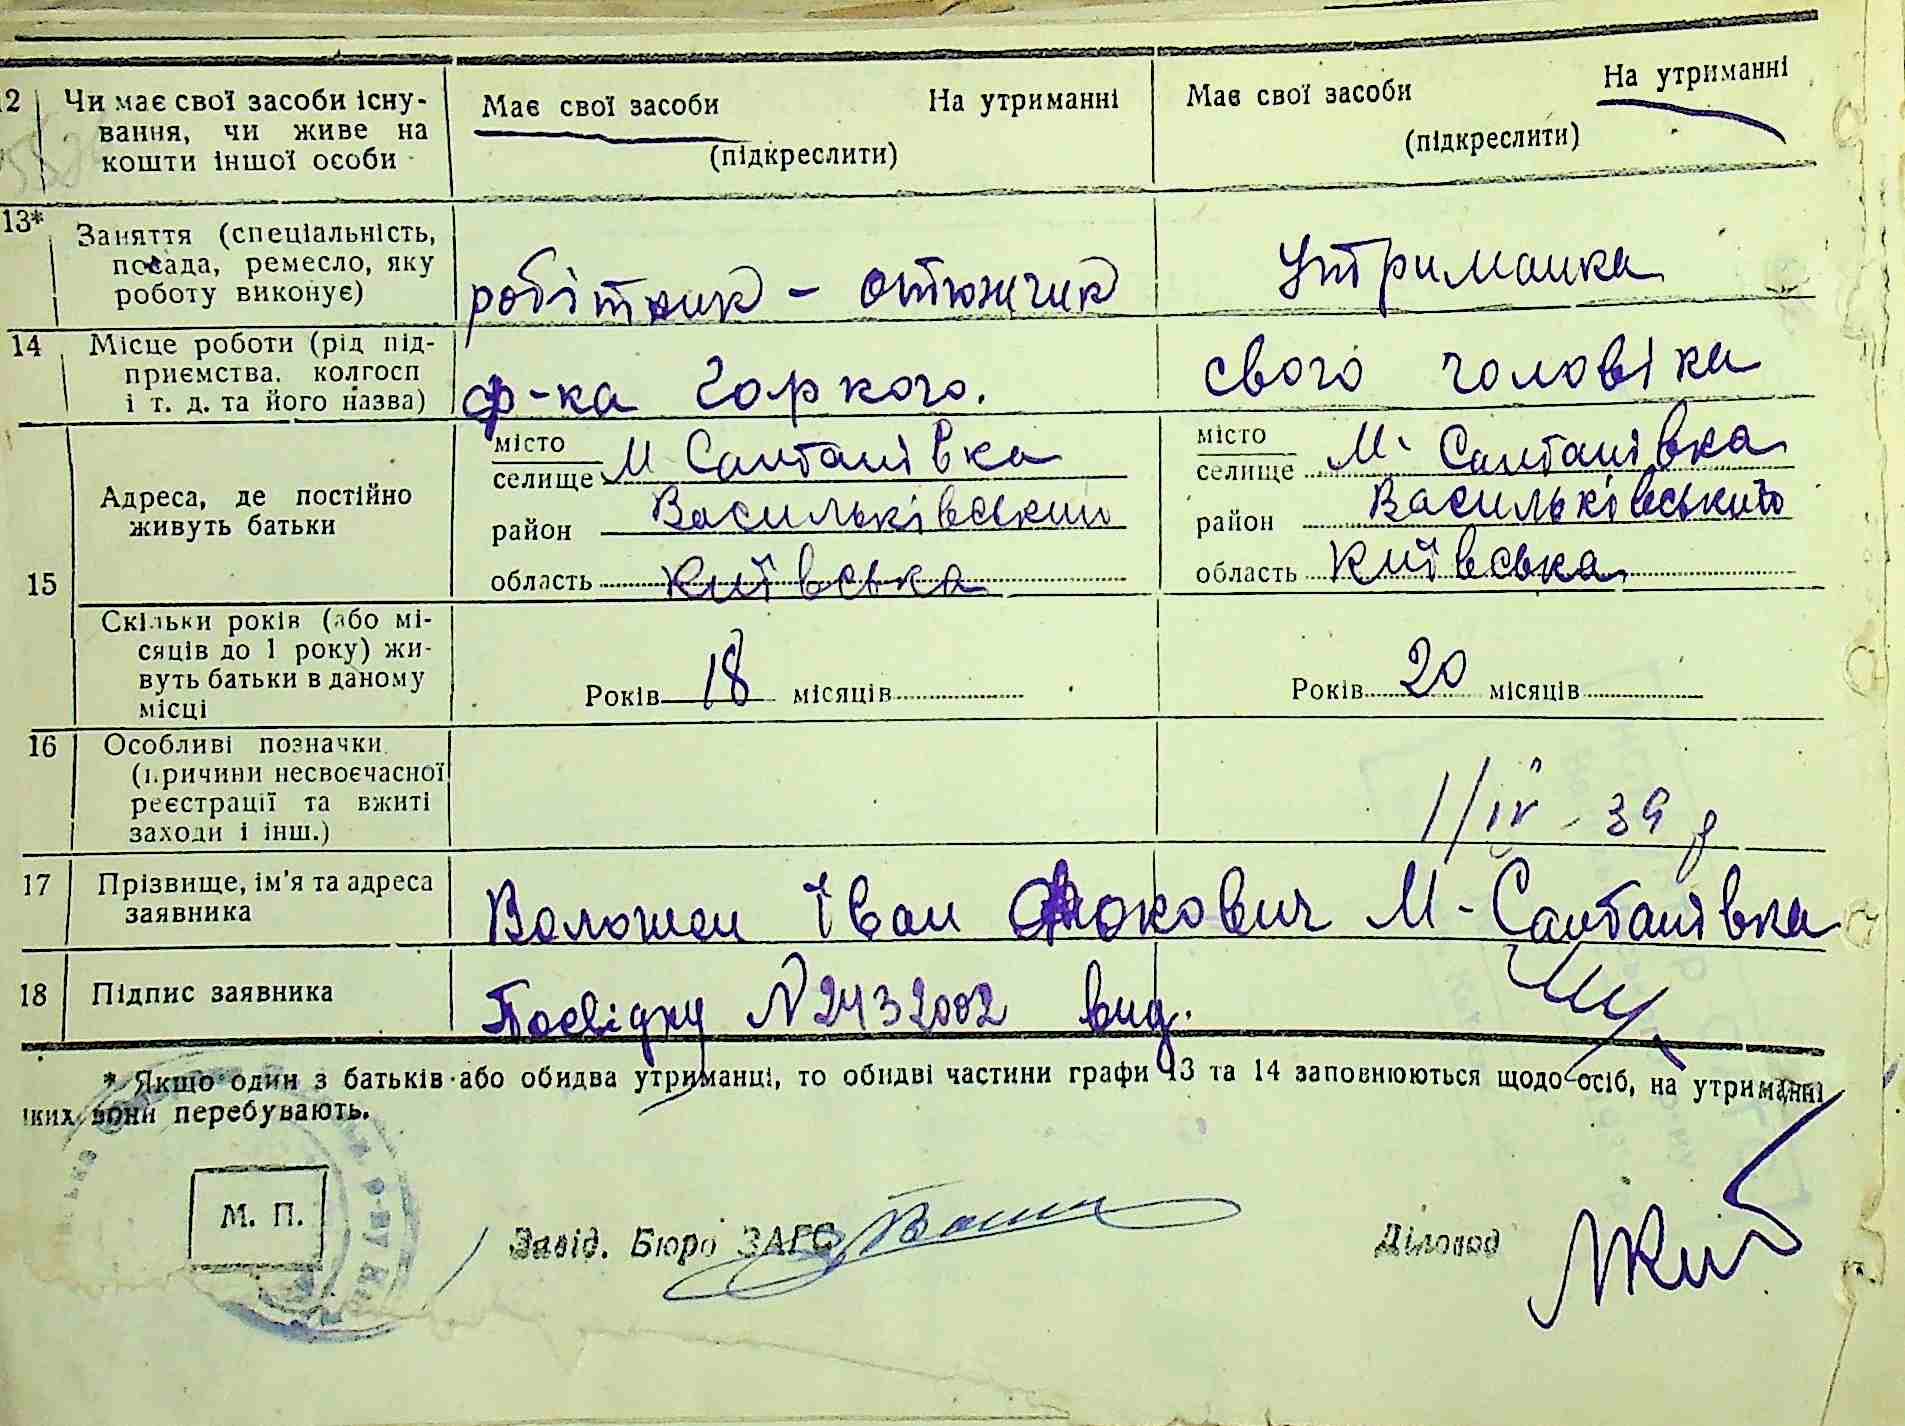 12 Чи має свої засоби існу-
вання, чи живе на
кошти іншої особи
Має свої засоби На утриманні
(підкреслити)
Має свої засоби На утриманні
(підкреслити)
13* Заняття (спеціальність,
посада, ремесло, яку
роботу виконує)
робітник - отюжчик
Утриманка
14 Місце роботи (рід під-
приємства, колгосп
і т. д. та його назва)
ф-ка Горкого.
свого чоловіка
15
Адреса, де постійно
живуть батьки
місто
селище М Салтанівка
район Васильківський
область Київська
місто
селище М. Салтанівка
район Васильківського
область Київська
Скільки років (або мі-
сяців до 1 року) жи-
вуть батьки в даному
місці
Років 18 місяців
Років 20 місяців
16 Особливі позначки
(причини несвоєчасної
реєстрації та вжиті
заходи і інш.)
1/IV - 39 р
17 Прізвище, ім'я та адреса
заявника
Іван Фокович М-Салтанівка
18 Підпис заявника
Посвідку №2432002 вид.
* Якщо один з батьків або обидва утриманці, то обидві частини графи 13 та 14 заповнюються щодо осіб, на утриманні
яких вони перебувають.
М. П.
Завід. Бюро ЗАГС
Діловод